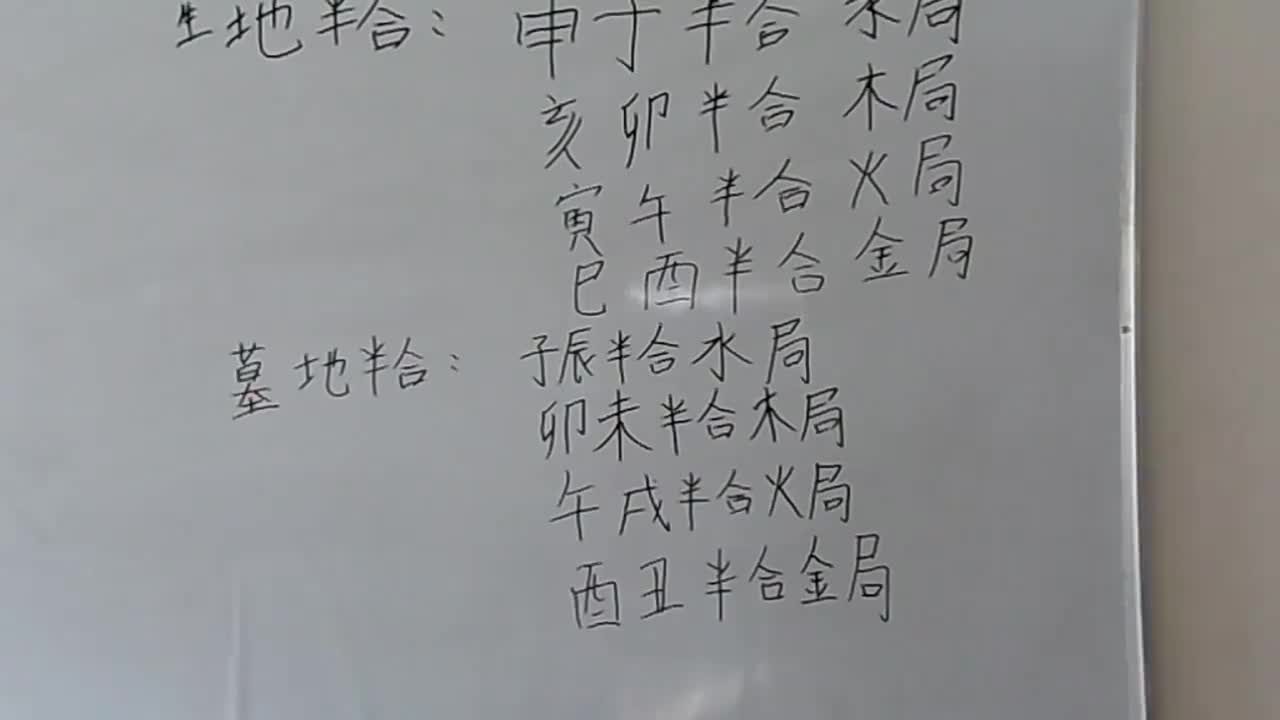 生地半合：申子半合水局
亥卯半合木局
寅午半合火局
巳酉半合金局
墓地半合：子辰半合水局
卯未半合木局
午戌半合火局
酉丑半合金局